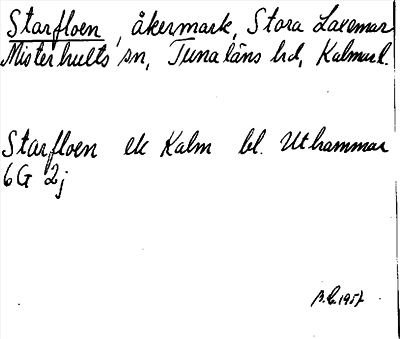 Starfloen, åkermark, Stora Laxemar
Misterhults sn, Tunaläns hd, Kalmarl.
Starfloen ek Kalm bl. Uthammar
6G 2j
1957